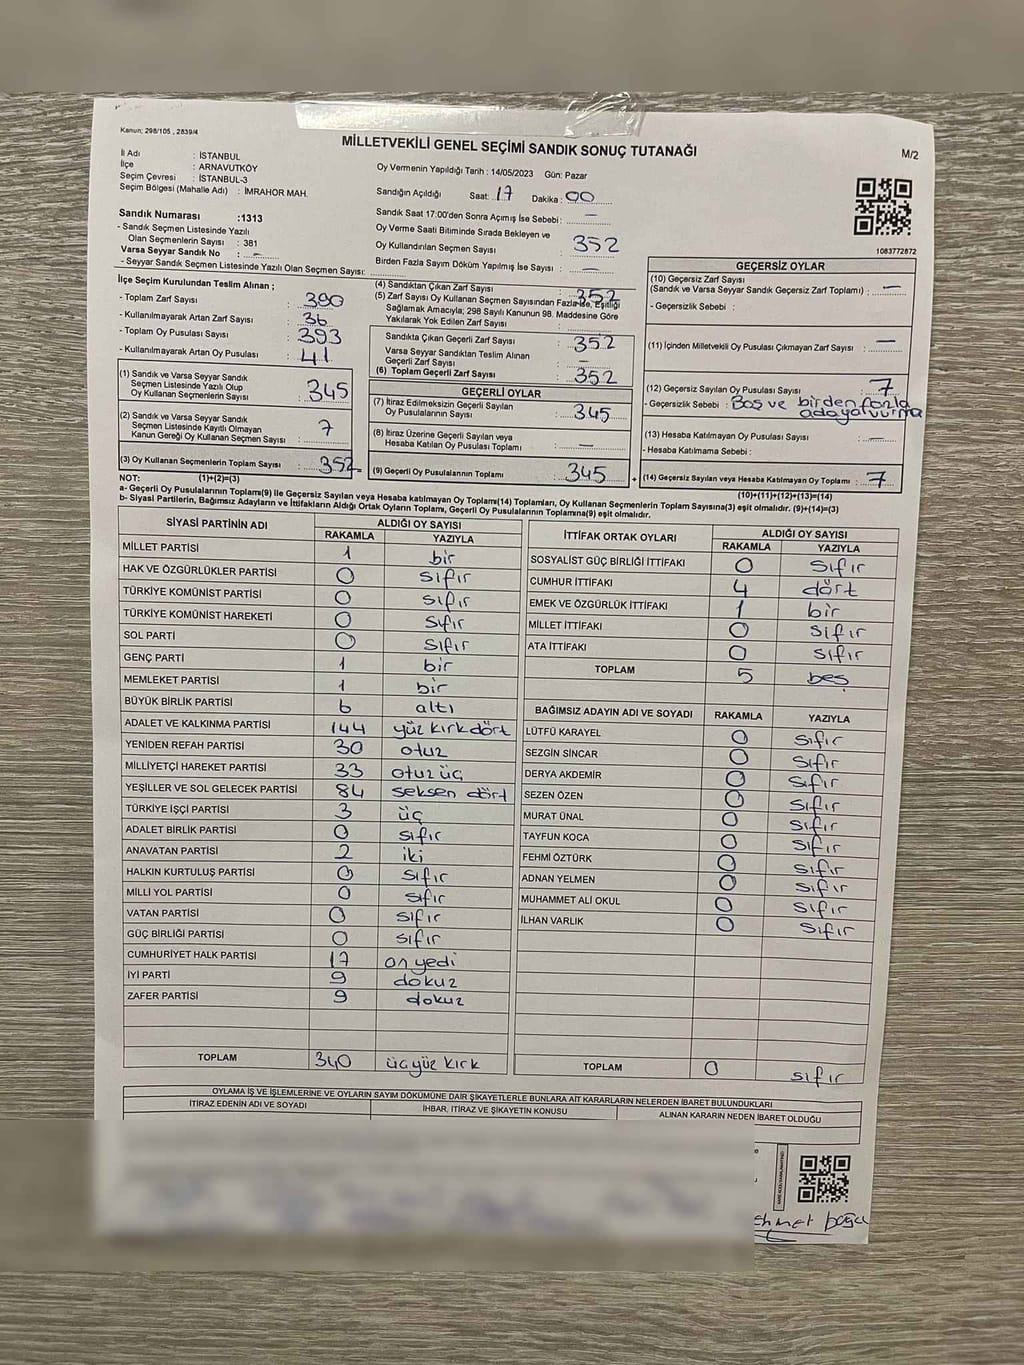 Kanun; 298/105 , 2839/4
MİLLETVEKİLİ GENEL SEÇİMİ SANDIK SONUÇ TUTANAĞI
M/2
İl Adı : İSTANBUL
İlçe : ARNAVUTKÖY
Seçim Çevresi : İSTANBUL-3
Seçim Bölgesi (Mahalle Adı) : İMRAHOR MAH.
Sandık Numarası :1313
- Sandık Seçmen Listesinde Yazılı
Olan Seçmenlerin Sayısı : 381
Varsa Seyyar Sandık No : -
- Seyyar Sandık Seçmen Listesinde Yazılı Olan Seçmen Sayısı:
Oy Vermenin Yapıldığı Tarih : 14/05/2023 Gün: Pazar
Sandığın Açıldığı Saat: 17 Dakika : 00
Sandık Saat 17:00'den Sonra Açımış İse Sebebi: -
Oy Verme Saati Bitiminde Sırada Bekleyen ve
Oy Kullandırılan Seçmen Sayısı : 352
Birden Fazla Sayım Döküm Yapılmış İse Sayısı : -
1083772872
İlçe Seçim Kurulundan Teslim Alınan ;
- Toplam Zarf Sayısı : 390
- Kullanılmayarak Artan Zarf Sayısı : 36
- Toplam Oy Pusulası Sayısı : 393
- Kullanılmayarak Artan Oy Pusulası : 41
(1) Sandık ve Varsa Seyyar Sandık
Seçmen Listesinde Yazılı Olup
Oy Kullanan Seçmenlerin Sayısı : 345
(2) Sandık ve Varsa Seyyar Sandık
Seçmen Listesinde Kayıtlı Olmayan
Kanun Gereği Oy Kullanan Seçmen Sayısı : 7
(3) Oy Kullanan Seçmenlerin Toplam Sayısı : 352
(1)+(2)=(3)
(4) Sandıktan Çıkan Zarf Sayısı : 352
(5) Zarf Sayısı Oy Kullanan Seçmen Sayısından Fazla ise, Eşitliği
Sağlamak Amacıyla; 298 Sayılı Kanunun 98. Maddesine Göre
Yakılarak Yok Edilen Zarf Sayısı :
Sandıkta Çıkan Geçerli Zarf Sayısı : 352
Varsa Seyyar Sandıktan Teslim Alınan
Geçerli Zarf Sayısı : -
(6) Toplam Geçerli Zarf Sayısı : 352
GEÇERLİ OYLAR
(7) İtiraz Edilmeksizin Geçerli Sayılan
Oy Pusulalarının Sayısı : 345
(8) İtiraz Üzerine Geçerli Sayılan veya
Hesaba Katılan Oy Pusulası Toplamı : -
(9) Geçerli Oy Pusulalarının Toplamı : 345
+
GEÇERSİZ OYLAR
(10) Geçersiz Zarf Sayısı
(Sandık ve Varsa Seyyar Sandık Geçersiz Zarf Toplamı) : -
- Geçersizlik Sebebi :
(11) İçinden Milletvekili Oy Pusulası Çıkmayan Zarf Sayısı : -
(12) Geçersiz Sayılan Oy Pusulası Sayısı : 7
- Geçersizlik Sebebi : Boş ve birden fazla
(13) Hesaba Katılmayan Oy Pusulası Sayısı : -
- Hesaba Katılmama Sebebi :
(14) Geçersiz Sayılan veya Hesaba Katılmayan Oy Toplamı : 7
(10)+(11)+(12)+(13)=(14)
NOT:
a- Geçerli Oy Pusulalarının Toplamı(9) ile Geçersiz Sayılan veya Hesaba katılmayan Oy Toplamı(14) Toplamları, Oy Kullanan Seçmenlerin Toplam Sayısına(3) eşit olmalıdır. (9)+(14)=(3)
b- Siyasi Partilerin, Bağımsız Adayların ve İttifakların Aldığı Ortak Oyların Toplamı, Geçerli Oy Pusulalarının Toplamına(9) eşit olmalıdır.
SİYASİ PARTİNİN ADI ALDIĞI OY SAYISI
RAKAMLA YAZIYLA
MİLLET PARTİSİ 1 bir
HAK VE ÖZGÜRLÜKLER PARTİSİ 0 sıfır
TÜRKİYE KOMÜNİST PARTİSİ 0 sıfır
TÜRKİYE KOMÜNİST HAREKETİ 0 sıfır
SOL PARTİ 0 sıfır
GENÇ PARTİ 1 bir
MEMLEKET PARTİSİ 1 bir
BÜYÜK BİRLİK PARTİSİ 6 altı
ADALET VE KALKINMA PARTİSİ 144 yüz kırk dört
YENİDEN REFAH PARTİSİ 30 otuz
MİLLİYETÇİ HAREKET PARTİSİ 33 otuz üç
YEŞİLLER VE SOL GELECEK PARTİSİ 84 seksen dört
TÜRKİYE İŞÇİ PARTİSİ 3 üç
ADALET BİRLİK PARTİSİ 0 sıfır
ANAVATAN PARTİSİ 2 iki
HALKIN KURTULUŞ PARTİSİ 0 sıfır
MİLLİ YOL PARTİSİ 0 sıfır
VATAN PARTİSİ 0 sıfır
GÜÇ BİRLİĞİ PARTİSİ 0 sıfır
CUMHURİYET HALK PARTİSİ 17 on yedi
İYİ PARTİ 9 dokuz
ZAFER PARTİSİ 9 dokuz
TOPLAM 340 üçyüz kırk
İTTİFAK ORTAK OYLARI ALDIĞI OY SAYISI
RAKAMLA YAZIYLA
SOSYALİST GÜÇ BİRLİĞİ İTTİFAKI 0 sıfır
CUMHUR İTTİFAKI 4 dört
EMEK VE ÖZGÜRLÜK İTTİFAKI 1 bir
MİLLET İTTİFAKI 0 sıfır
ATA İTTİFAKI 0 sıfır
TOPLAM 5 beş
BAĞIMSIZ ADAYIN ADI VE SOYADI RAKAMLA YAZIYLA
LÜTFÜ KARAYEL 0 sıfır
SEZGİN SİNCAR 0 sıfır
DERYA AKDEMİR 0 sıfır
SEZEN ÖZEN 0 sıfır
MURAT ÜNAL 0 sıfır
TAYFUN KOCA 0 sıfır
FEHMİ ÖZTÜRK 0 sıfır
ADNAN YELMEN 0 sıfır
MUHAMMET ALİ OKUL 0 sıfır
İLHAN VARLIK 0 sıfır
TOPLAM 0 sıfır
OYLAMA İŞ VE İŞLEMLERİNE VE OYLARIN SAYIM DÖKÜMÜNE DAİR ŞİKAYETLERLE BUNLARA AİT KARARLARIN NELERDEN İBARET BULUNDUKLARI
İTİRAZ EDENİN ADI VE SOYADI İHBAR, İTİRAZ VE ŞİKAYETİN KONUSU ALINAN KARARIN NEDEN İBARET OLDUĞU